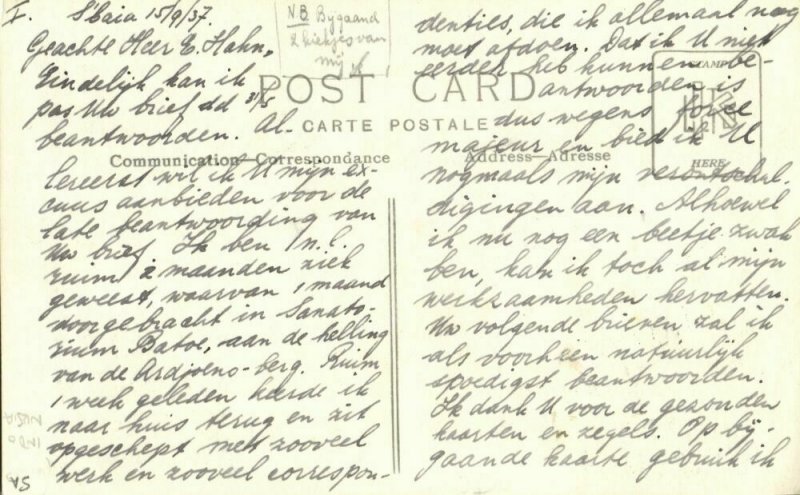 I. S'baia 15/9/37.
NB Bijgaand
2 kiekjes van
mij
Geachte Heer E. Hahn,
Eindelijk kan ik
pas Uw brief dd 31/5
beantwoorden. Al-
lereerst wil ik U mijn ex-
cuus aanbieden voor de
late beantwoording van
Uw brief. Ik ben n.l.
ruim 2 maanden ziek
geweest, waarvan 1 maand
doorgebracht in Sanato-
rium Batoe, aan de helling
van de Ardjoeno-berg. Ruim
1 week geleden keerde ik
naar huis terug en zit
opgeschept met zooveel
werk en zooveel correspon-
denties, die ik allemaal nog
moet afdoen. Dat ik U niet
eerder heb kunnen be-
antwoorden is
dus wegens force
majeur en bied ik U
nogmaals mijn verontschul-
digingen aan. Alhoewel
ik nu nog een beetje zwak
ben, kan ik toch al mijn
werkzaamheden hervatten.
Uw volgende brieven zal ik
als voorheen natuurlijk
spoedigst beantwoorden.
Ik dank U voor de gezonden
kaarten en zegels. Op bij-
gaande kaarte gebruik ik
POST CARD
CARTE POSTALE
Communication—Correspondance
Address—Adresse
STAMP
HERE
INDO
NESIA
SA